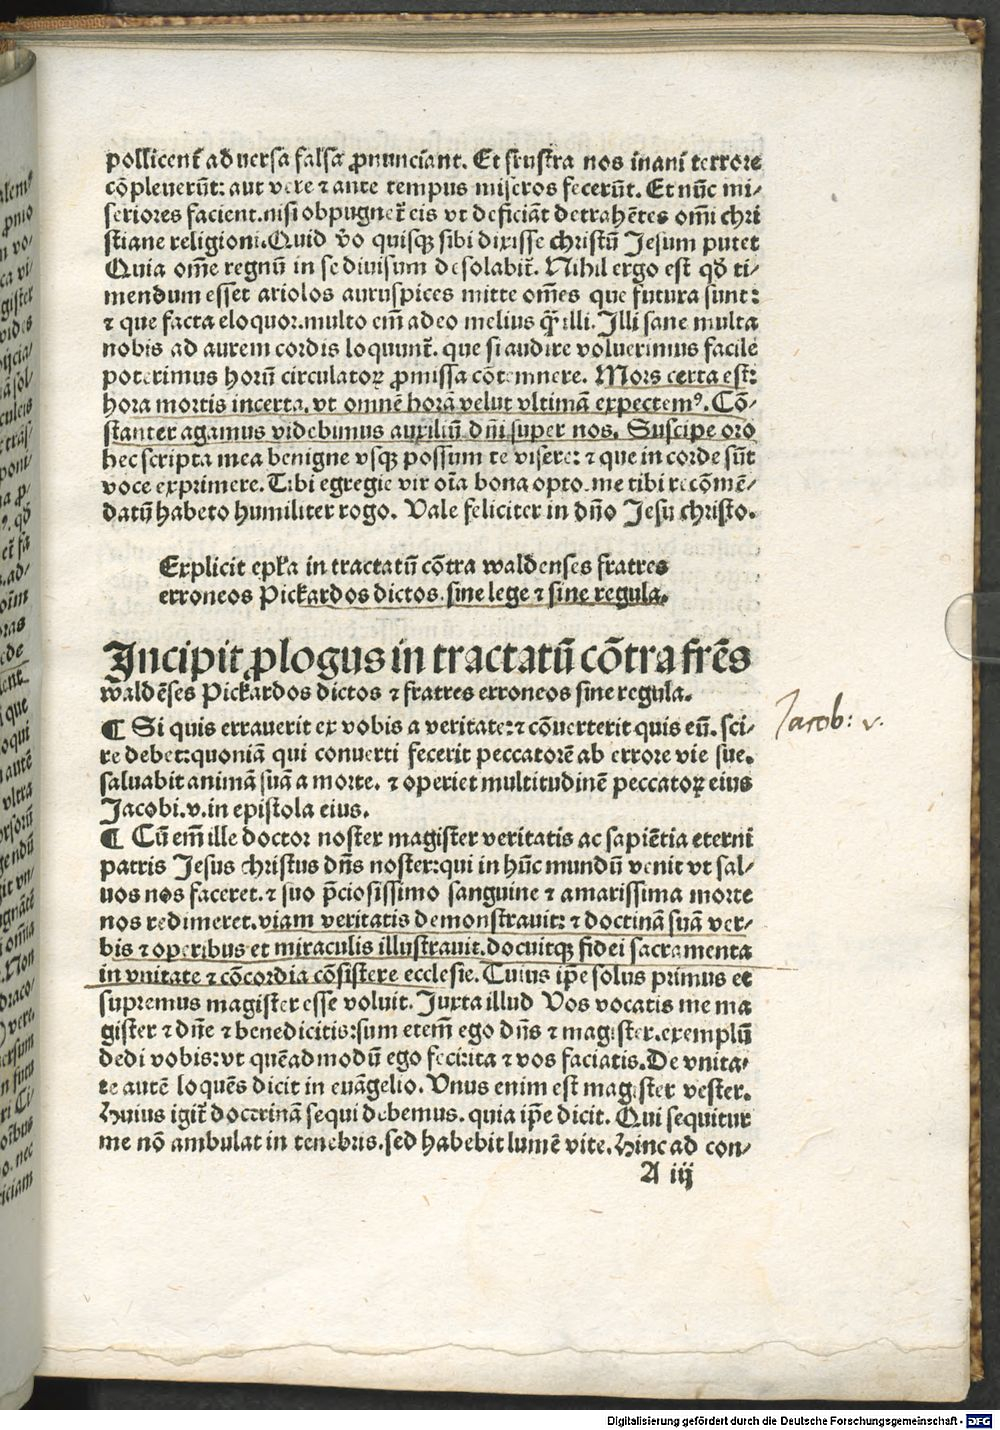 pollicent᷑ aduersa falsa ꝓnunciant. Et frustra nos inani terrore
cōpleuerūt: aut vere ⁊ ante tempus miseros fecerūt. Et nūc mi⸗
seriores facient.nisi obpugnet᷑ eis vt deficiāt detrahētes om̄i chri
stiane religioni.Quid v̄o quisqꝫ sibi dixisse christū Jesum putet
Quia om̄e regnū in se diuisum desolabit᷑. Nihil ergo est qḋ ti⸗
mendum esset ariolos auruspices mitte om̄es que futura sunt:
⁊ que facta eloquor.multo em̄ adeo melius qͣ̄ illi. Illi sane multa
nobis ad aurem cordis loquunt᷑. que si audire voluerimus facile
poterimus horū circulatoꝝ ꝓmissa cōtemnere. Mors certa est:
hora mortis incerta. vt omnē horā velut vltimā expectemꝰ. Cō⸗
stanter agamus videbimus auxiliū dn̄i super nos. Suscipe oro
hec scripta mea benigne vsqꝫ possum te visere: ⁊ que in corde sūt
voce exprimere. Tibi egregie vir oīa bona opto. me tibi recōmē⸗
datū habeto humiliter rogo. Vale feliciter in dn̄o Jesu christo.
Explicit epl̄a in tractatū cōtra waldenses fratres
erroneos Pickardos dictos. sine lege ⁊ sine regula.
Incipit ꝓlogus in tractatū cōtra fr̄es
waldēses Pickardos dictos ⁊ fratres erroneos sine regula.
¶ Si quis errauerit ex vobis a veritate: ⁊ cōuerterit quis eū. sci⸗
re debet: quoniā qui conuerti fecerit peccatorē ab errore vie sue.
saluabit animā suā a morte. ⁊ operiet multitudinē peccatoꝝ eius
Jacobi.v. in epistola eius.
Jacob: v.
¶ Cū em̄ ille doctor noster magister veritatis ac sapiētia eterni
patris Jesus christus dn̄s noster: qui in hūc mundū venit vt sal⸗
uos nos faceret. ⁊ suo p̄ciosissimo sanguine ⁊ amarissima morte
nos redimeret. viam veritatis demonstrauit: ⁊ doctrinā suā ver⸗
bis ⁊ operibus et miraculis illustrauit. docuitqꝫ fidei sacramenta
in vnitate ⁊ cōcordia cōsistere ecclesie. Cuius ip̄e solus primus et
supremus magister esse voluit. Juxta illud Vos vocatis me ma
gister ⁊ dn̄e ⁊ benedicitis: sum etem̄ ego dn̄s ⁊ magister. exemplū
dedi vobis: vt quēadmodū ego feci: ita ⁊ vos faciatis. De vnita⸗
te autē loquēs dicit in euāgelio. Vnus enim est magister vester.
Huius igit᷑ doctrinā sequi debemus. quia ip̄e dicit. Qui sequitur
me nō ambulat in tenebris. sed habebit lumē vite. Hinc ad con⸗
A iij
Digitalisierung gefördert durch die Deutsche Forschungsgemeinschaft - DFG